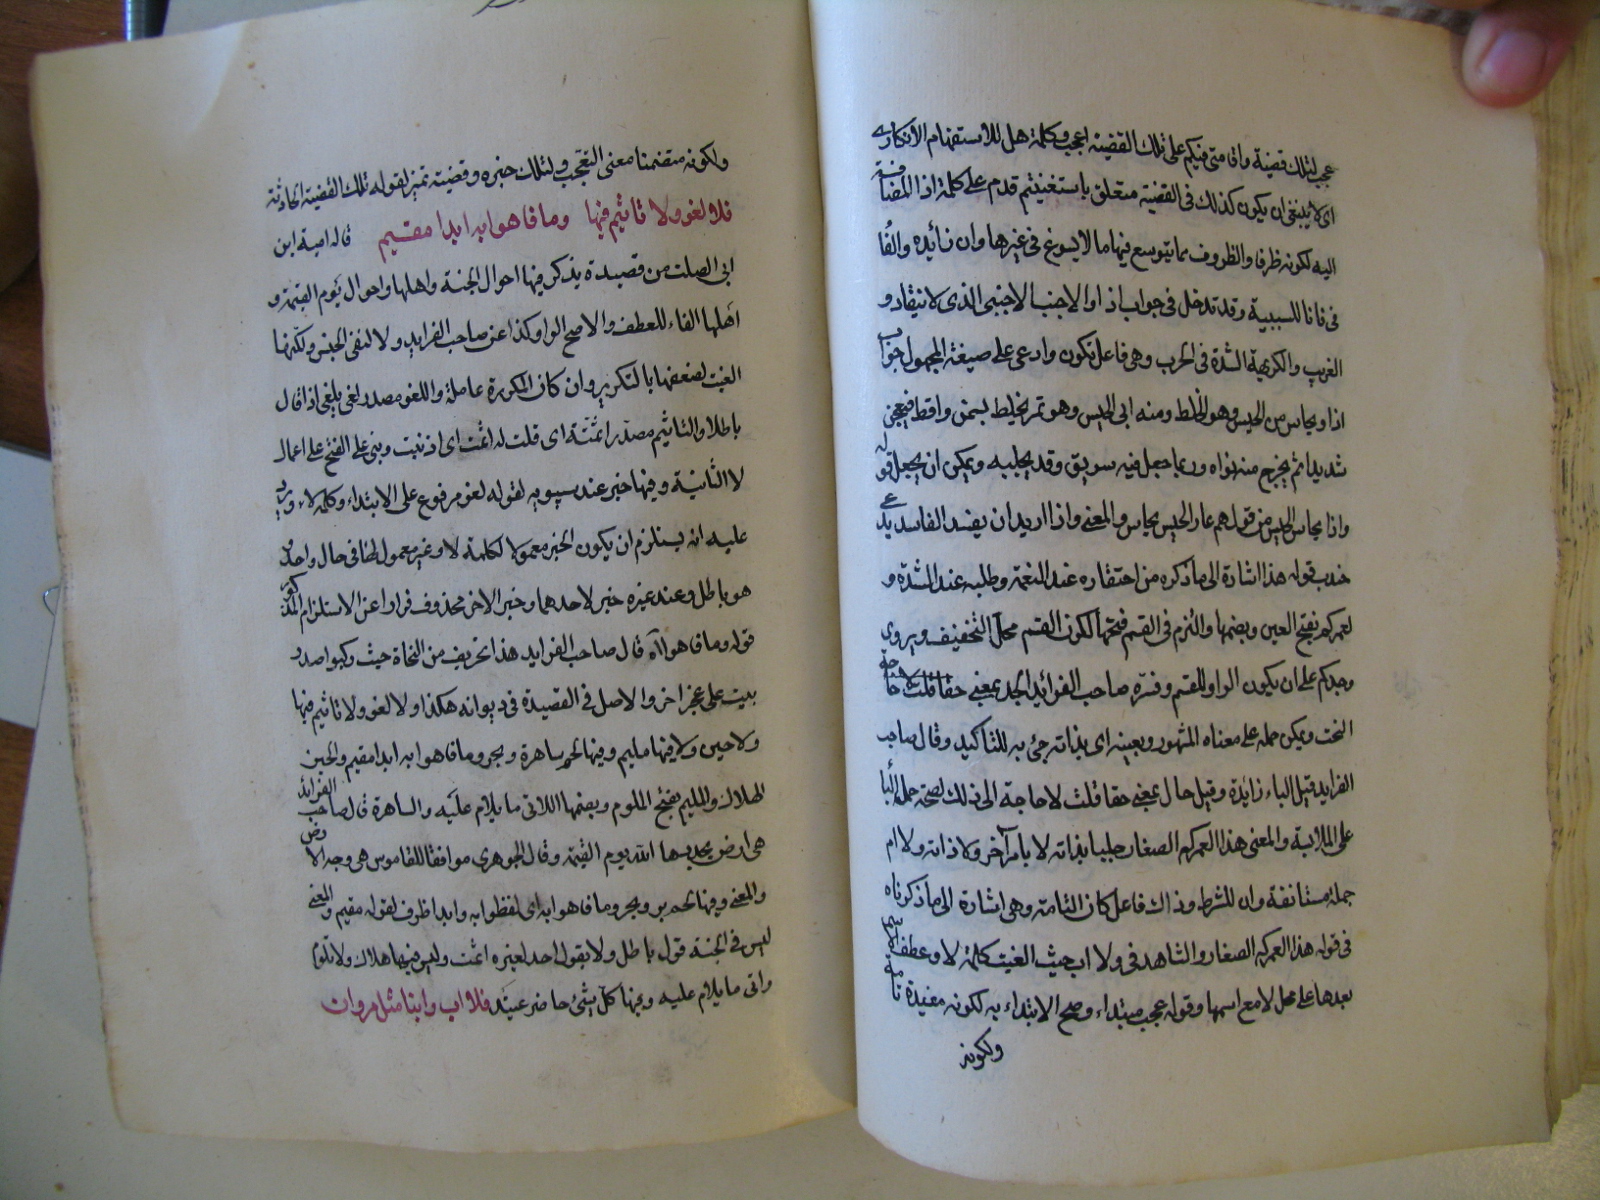 عجب لتلك قضية واقامتى فيكم على تلك القضية اعجب وكلمة هل للاستفهام الانكارى
اى لا ينبغى ان يكون كذلك فى القضية متعلق باستغنيتم قدم على كلمة اذا المضافة
اليه لكونه ظرفا والظروف مما يتوسع فيها ما لا يسوغ فى غيرها وان زائدة والفا
فى فانا للسببية وقد تدخل فى جواب اذا والاجنب الاجنبى الذى لا ينقاد و
الغريب والكريهة الشدة فى الحرب وهى فاعل تكون وادعى على صيغة المجهول جواب
اذا ويحاس من الحيس وهو الخلط ومنه الحيس وهو تمر يخلط بسمن واقط فيعجن
شديدا ثم يخرج منه نواه وربما جعل فيه سويق وقد يحلبه ويمكن ان يجعل قوله
واذا يحاس الحيس من قولهم عاد الحيس يحاس والمعنى واذا اريد ان يفسد الفاسد يدعى
جندب قوله هذا اشارة الى ما ذكره من احتقاره عند النعمة وطلبه عند الشدة و
لعمركم بفتح العين وبضمها والتزم فى القسم فتحها لكون القسم محل التخفيف ويروى
وجدكم على ان يكون الواو للقسم وفسره صاحب الفوائد الجد بمعنى حقا قلت لا حاجة
البحث ويمكن حمله على معناه المشهور وبعينه اى بذاته جئ به للتاكيد وقال صاحب
الفرايد قيل الباء زائدة وقيل حال بمعنى حقا قلت لا حاجة الى ذلك لصحة حمل البا
على الملابسة والمعنى هذا لعمركم الصغار جليا بذاته لا بامر آخر ولا ذاته ولا ام
جملة مستانفة وان للشرط وذاك فاعل كان التامة وهى اشارة الى ما ذكرناه
فى قوله هذا لعمركم الصغار والشاهد فى ولا اب حيث الغيت كلمة لا وعطف الاسم
بعدها على محل لا مع اسمها وقوله عجب مبتداء وصح الابتداء به لكونه مفيدة تامة
ولكونه
ولكونه متضمنا معنى التعجب ولتلك خبره وقضية تميز لقوله تلك القضية الحادثة
فلا لغو ولا تاثيم فيها وما فاهوا به ابدا مقيم قاله امية ابن
ابى الصلت من قصيدة يذكر فيها احوال الجنة واهلها واحوال يوم القيمة و
اهلها الفاء للعطف والاصح الواو كذا عن صاحب الفرايد ولا لنفى الجنس ولكنها
الغيت لضعفها بالتكرير وان كان المكررة عاملة واللغو مصدر لغى يلغى اذا قال
باطلا والتاثيم مصدر اثمته اى قلت له اثمت اى اذنبت وبنى على الفتح على اعمال
لا الثانية وفيها خبر عند سيبويه لقوله لغو مرفوع على الابتداء وكلمة لا ويرد
عليه انه يستلزم ان يكون الخبر معمولا لكلمة لا وغير معمول لها فى حال واحد و
هو باطل وعند غيره خبر لاحدهما وخبر الاخر محذوف فرارا عن الاستلزام المذكور
قوله وما فاهوا آه قال صاحب الفرايد هذا تحريف من النحاة حيث ركبوا صدر
بيت على عجز اخر والاصل فى القصيدة فى ديوانه هكذا ولا لغو ولا تاثيم فيها
ولا حين ولا فيها مليم وفيها لحم ساهرة وبحر وما فاهوا به ابدا مقيم والحين
الهلاك والمليم بفتح الملوم وبضمها اللاتى ما يلام عليه والساهرة قال صاحب الفرائد
هى ارض يجددها الله يوم القيمة وقال الجوهرى موافقا للقاموس هى وجه الارض
والمعنى وفيها لحم بر وبحر وما فاهوا به اى لفظوا به وابدا ظرف لقوله مقيم والمعنى
ليس فى الجنة قول باطل ولا يقول احد لغيره اثمت وليس فيها هلاك ولا تلوم
واتى ما يلام عليه وفيها كل شئ حاضر عتيد فلا اب وابنا مثل مروان